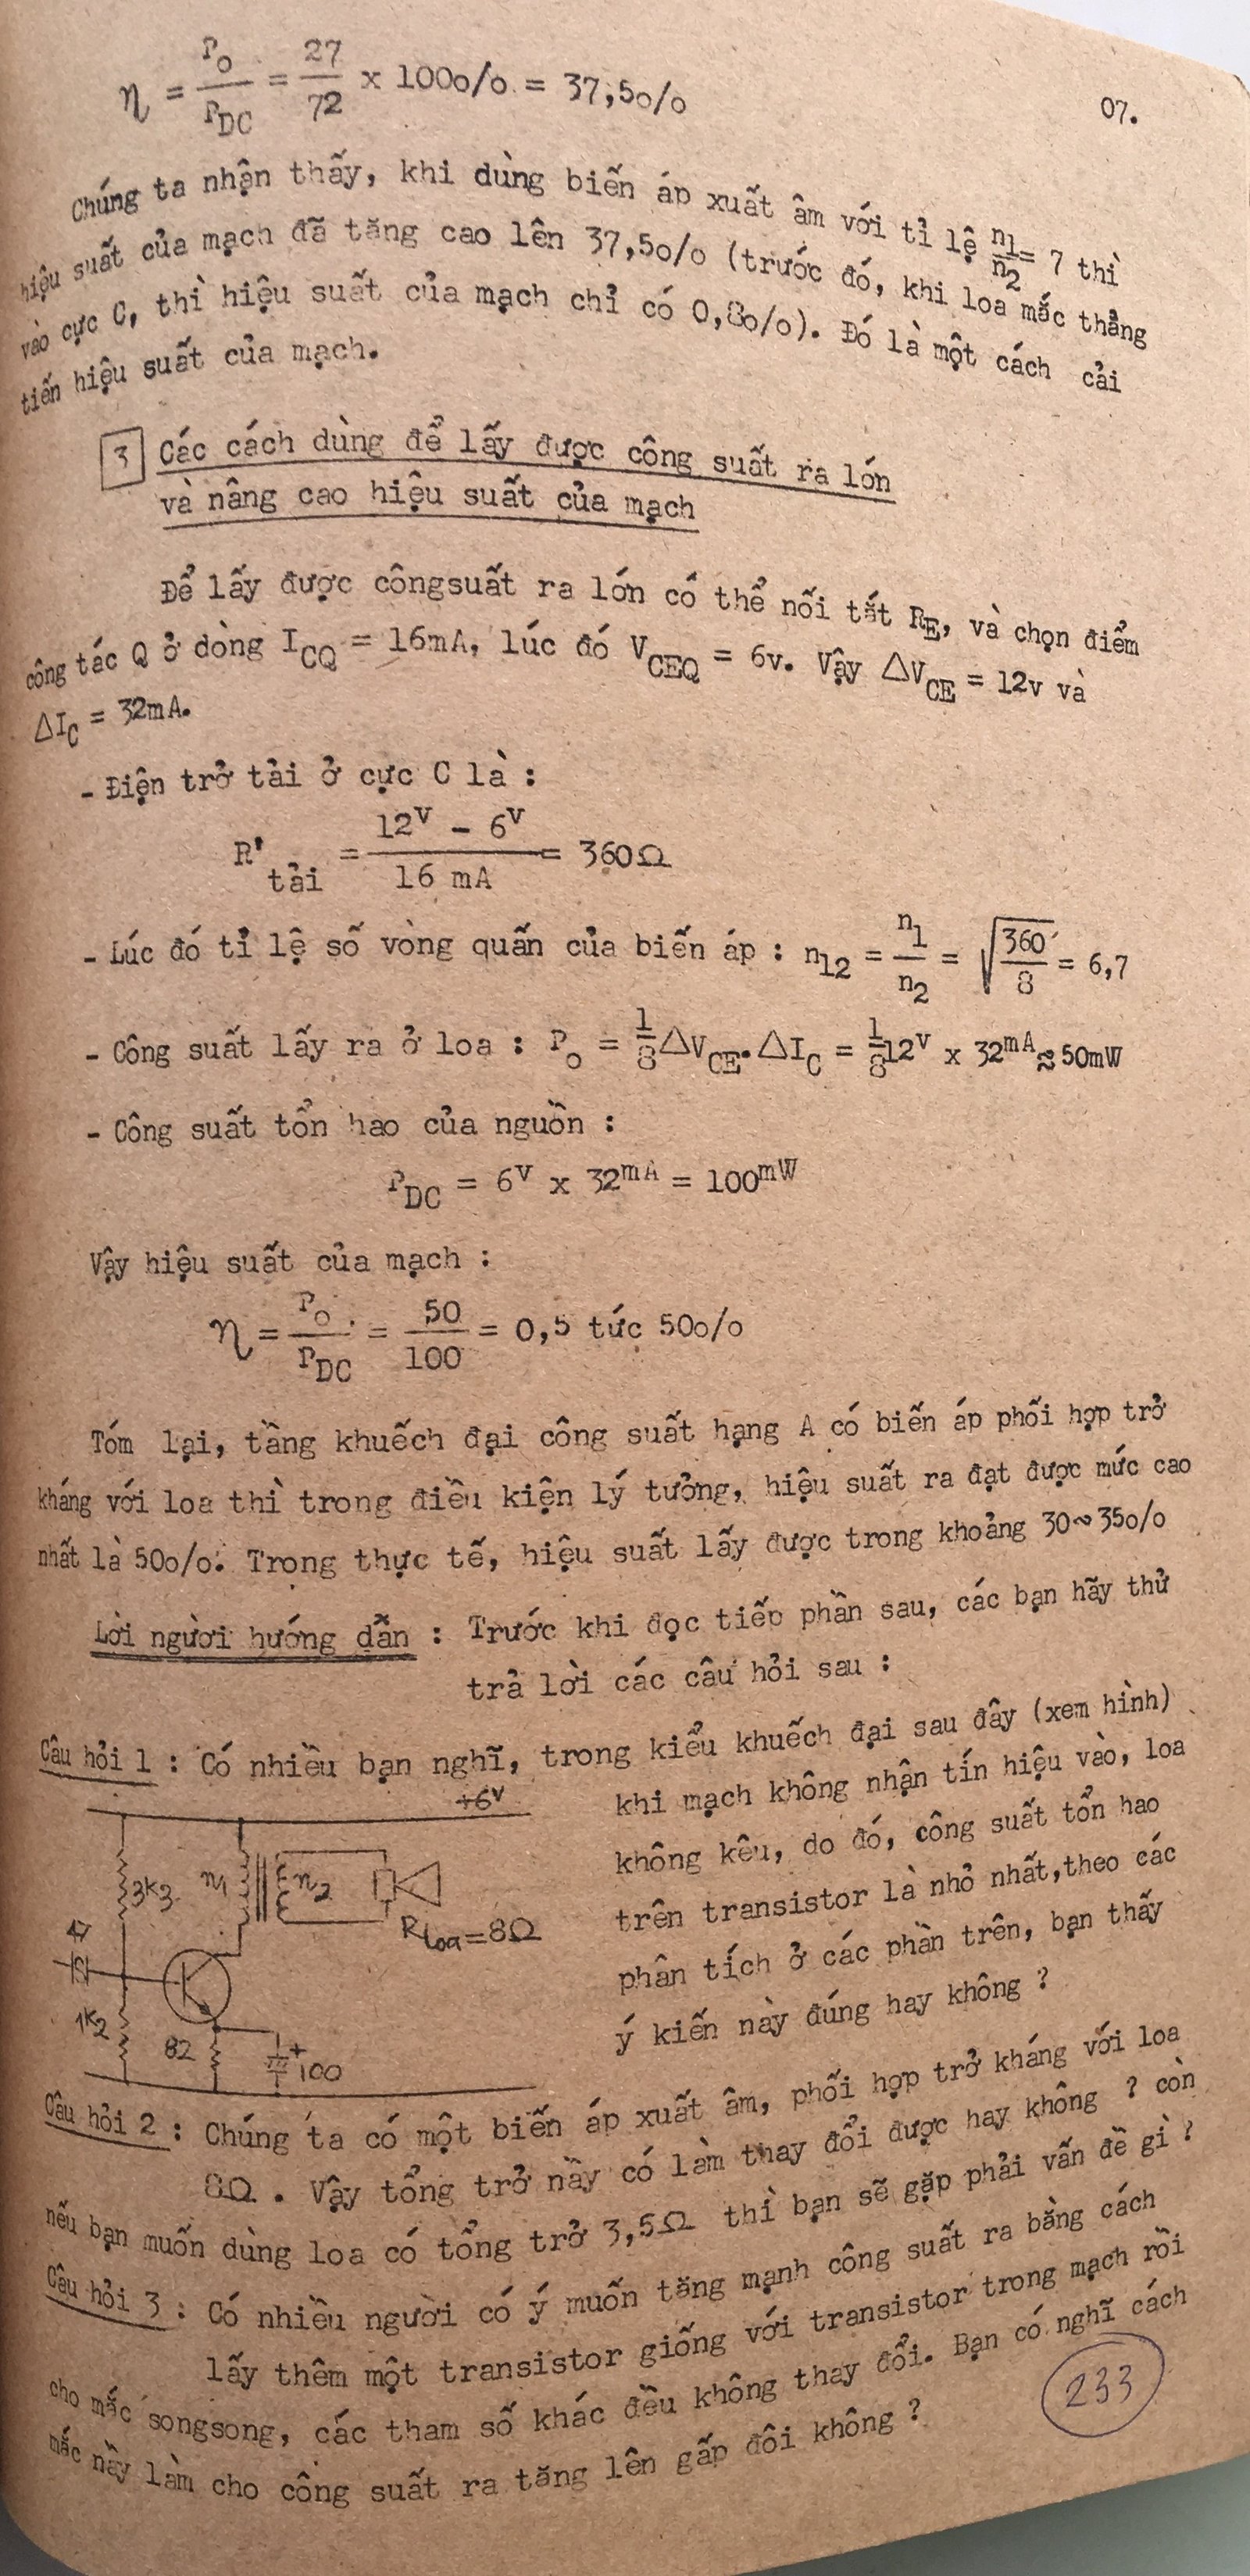 η = P_O / P_DC = 27/72 x 100o/o = 37,5o/o
07.
Chúng ta nhận thấy, khi dùng biến áp xuất âm với tỉ lệ n1/n2 = 7 thì
hiệu suất của mạch đã tăng cao lên 37,5o/o (trước đó, khi loa mắc thẳng
vào cực C, thì hiệu suất của mạch chỉ có 0,8o/o). Đó là một cách cải
tiến hiệu suất của mạch.
3 Các cách dùng để lấy được công suất ra lớn
và nâng cao hiệu suất của mạch
Để lấy được côngsuất ra lớn có thể nối tắt R_E, và chọn điểm
công tác Q ở dòng I_CQ = 16mA, lúc đó V_CEQ = 6v. Vậy ΔV_CE = 12v và
ΔI_C = 32mA.
- Điện trở tải ở cực C là :
R'_tải = (12^V - 6^V) / 16 mA = 360Ω
- Lúc đó tỉ lệ số vòng quấn của biến áp : n_12 = n1/n2 = √(360/8) = 6,7
- Công suất lấy ra ở loa : P_O = 1/8 ΔV_CE.ΔI_C = 1/8 12^V x 32^mA ≈ 50mW
- Công suất tổn hao của nguồn :
P_DC = 6^V x 32^mA = 100^mW
Vậy hiệu suất của mạch :
η = P_O / P_DC = 50/100 = 0,5 tức 50o/o
Tóm lại, tầng khuếch đại công suất hạng A có biến áp phối hợp trở
kháng với loa thì trong điều kiện lý tưởng, hiệu suất ra đạt được mức cao
nhất là 50o/o. Trong thực tế, hiệu suất lấy được trong khoảng 30~35o/o
Lời người hướng dẫn : Trước khi đọc tiếp phần sau, các bạn hãy thử
trả lời các câu hỏi sau :
Câu hỏi 1 : Có nhiều bạn nghĩ, trong kiểu khuếch đại sau đây (xem hình)
khi mạch không nhận tín hiệu vào, loa
không kêu, do đó, công suất tổn hao
trên transistor là nhỏ nhất,theo các
phân tích ở các phần trên, bạn thấy
ý kiến này đúng hay không ?
+6V
3K3
n1
n2
R_Loa=8Ω
47
1K2
82
+
100
Câu hỏi 2 : Chúng ta có một biến áp xuất âm, phối hợp trở kháng với loa
8Ω . Vậy tổng trở nầy có làm thay đổi được hay không ? còn
nếu bạn muốn dùng loa có tổng trở 3,5Ω thì bạn sẽ gặp phải vấn đề gì ?
Câu hỏi 3 : Có nhiều người có ý muốn tăng mạnh công suất ra bằng cách
lấy thêm một transistor giống với transistor trong mạch rồi
cho mắc songsong, các tham số khác đều không thay đổi. Bạn có nghĩ cách
mắc nầy làm cho công suất ra tăng lên gấp đôi không ?
233